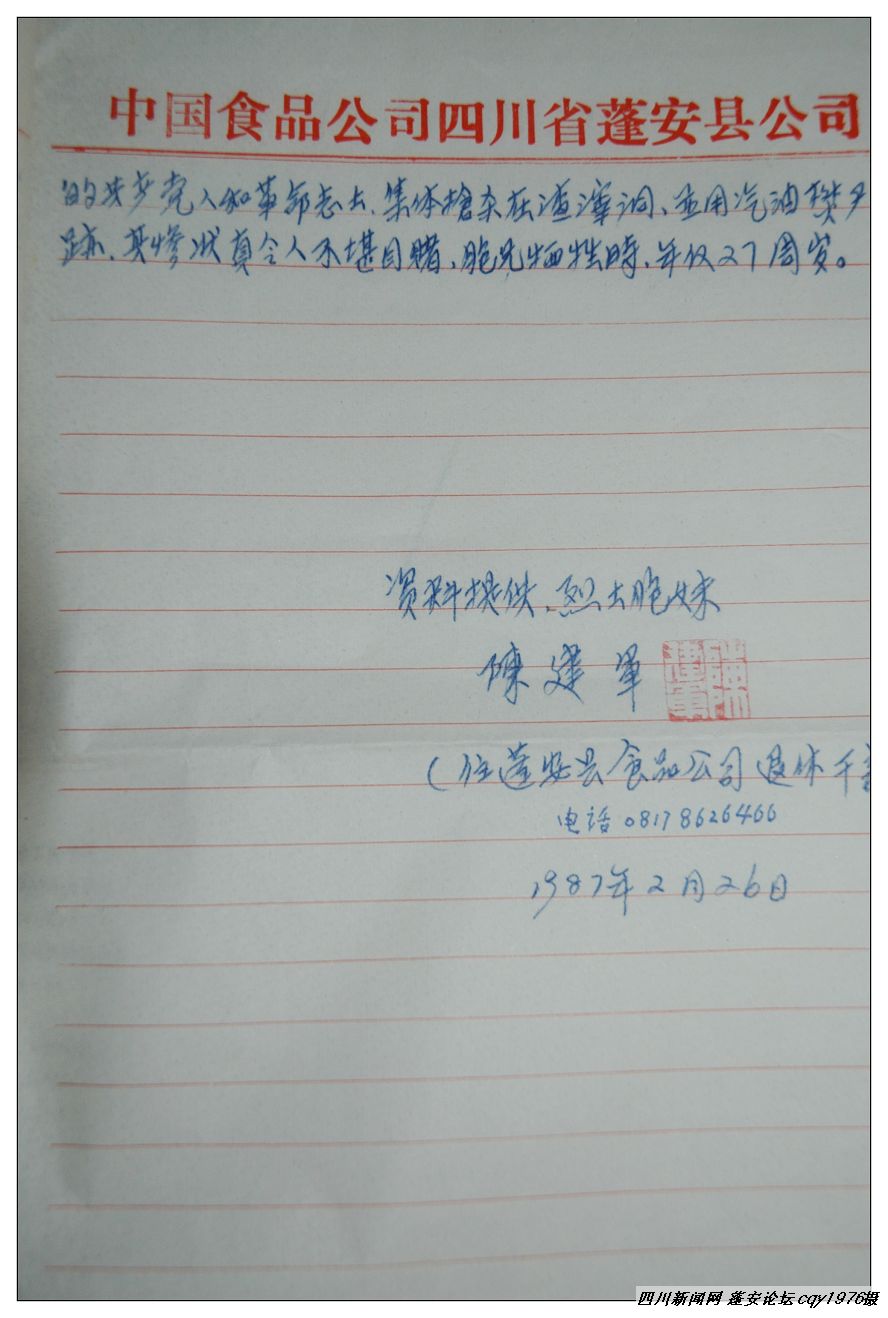 中国食品公司四川省蓬安县公司
的共产党人和革命志士、集体槍杀在渣滓洞、並用汽油焚尸
跡、其慘状真令人不堪目睹、胞兄牺牲時、年仅27周岁。
资料提供、烈士胞妹
陳建軍
陳建軍
(住蓬安县食品公司退休干
电话 08178626466
1987年2月26日
四川新闻网 蓬安论坛cqy1976摄